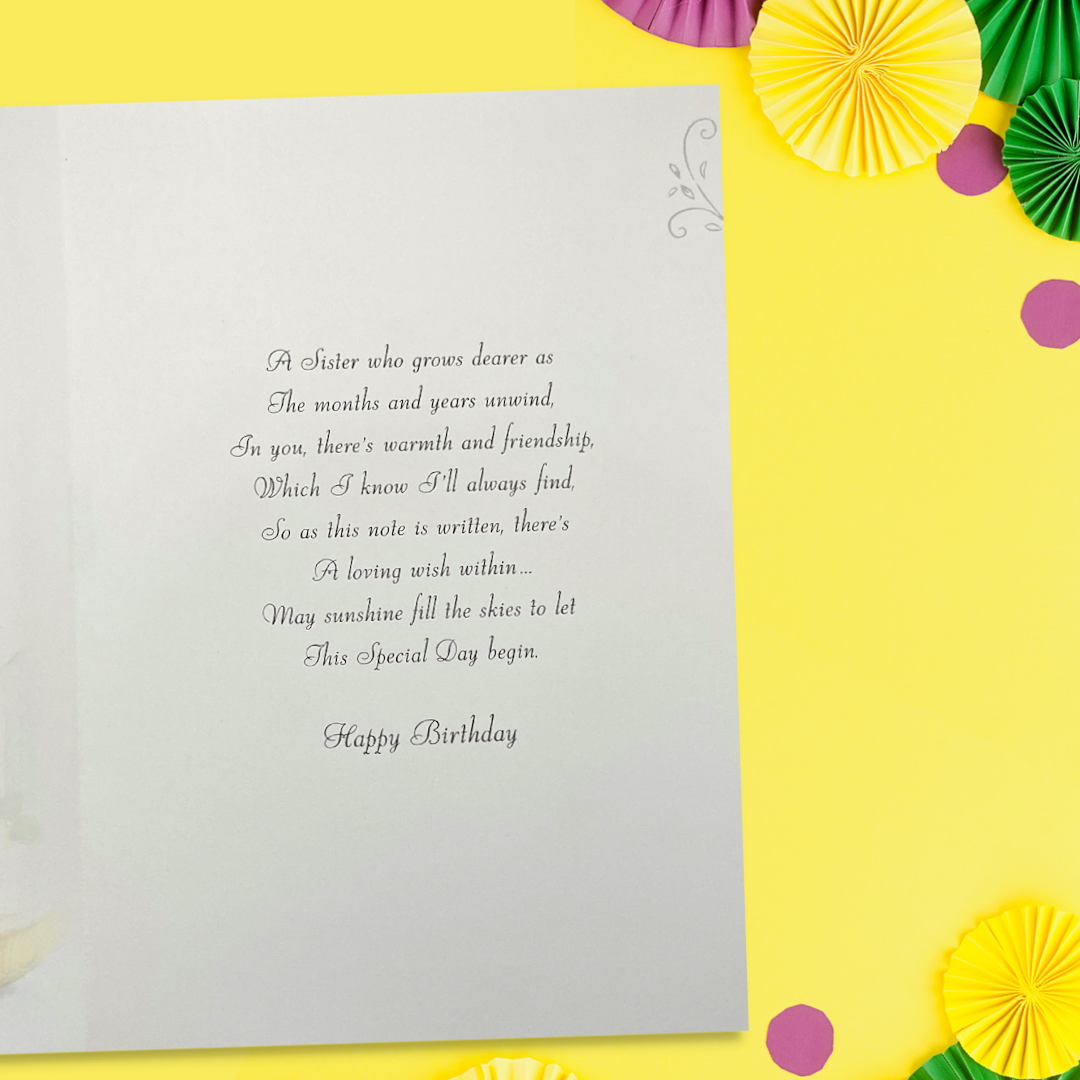 A Sister who grows dearer as
The months and years unwind,
In you, there's warmth and friendship,
Which I know I'll always find,
So as this note is written, there's
A loving wish within...
May sunshine fill the skies to let
This Special Day begin.
Happy Birthday